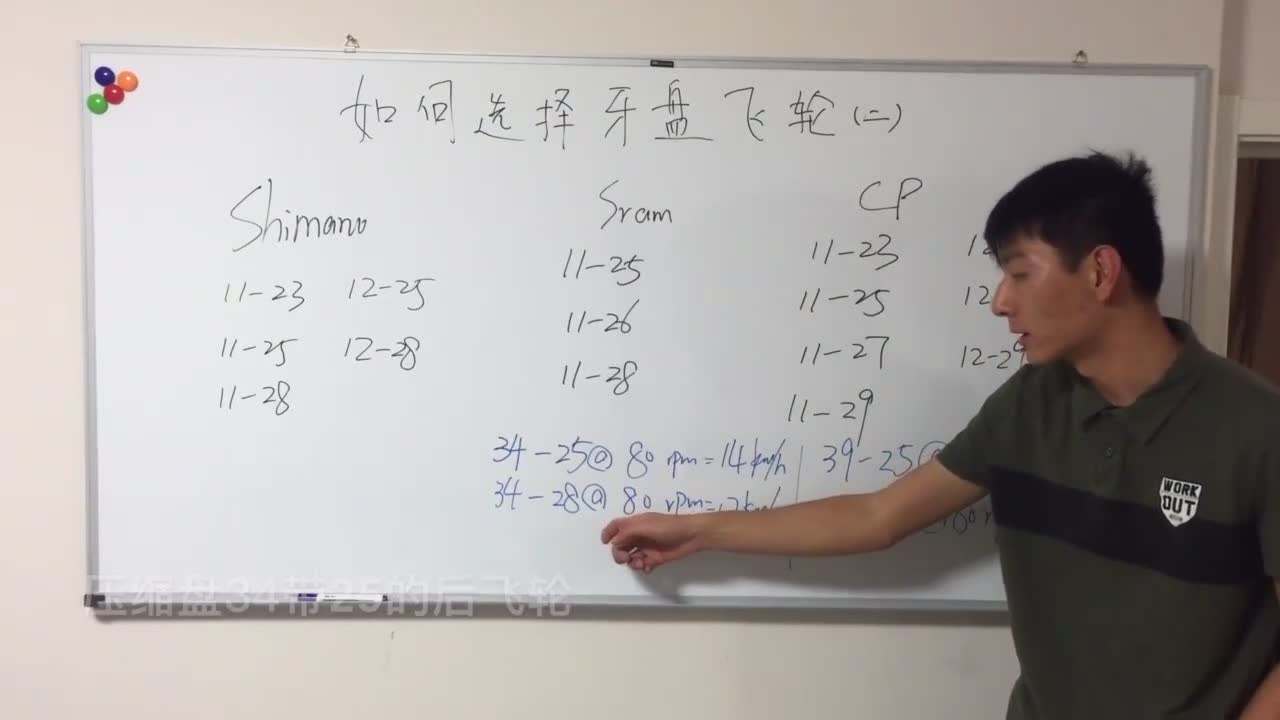 如何选择牙盘飞轮(二)
Shimano
11-23 12-25
11-25 12-28
11-28
Sram
11-25
11-26
11-28
CP
11-23
11-25
11-27 12-29
11-29
34-25@ 80 rpm=14km/h
34-28@ 80 rpm=
39-25@
WORK
OUT
压缩盘34带25的后飞轮